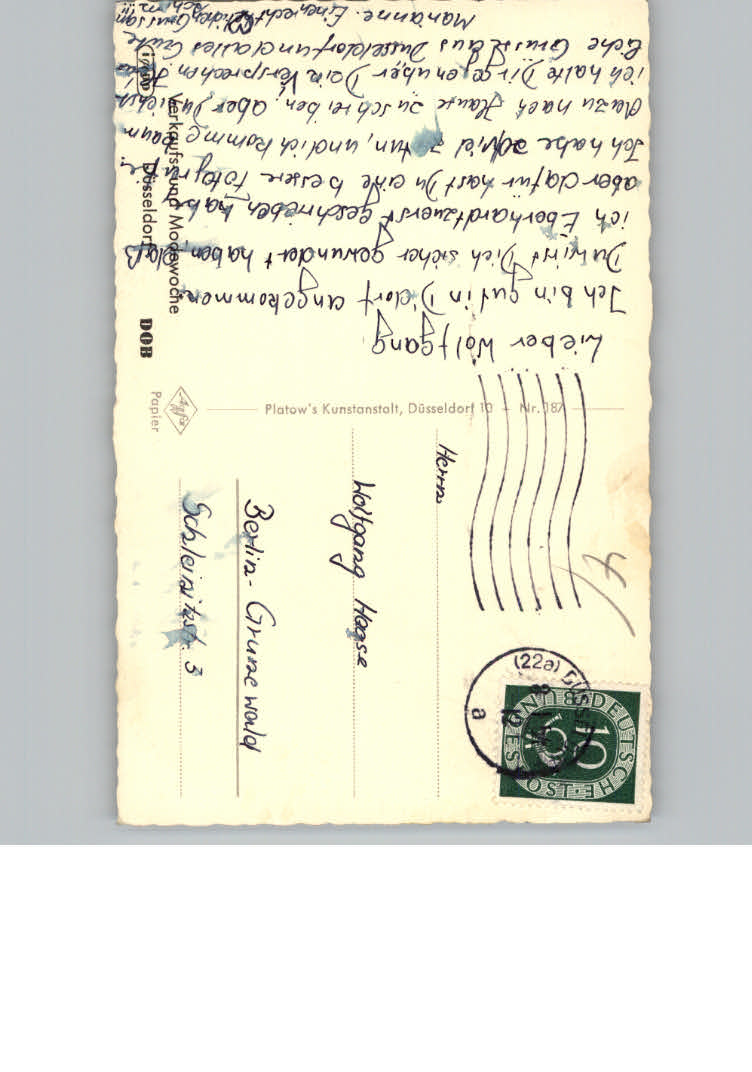 Lieber Wolfgang,
Ich bin gut in D'dorf angekommen.
Du wirst Dich sicher gewundert haben, daß
ich Eberhardt zuerst geschrieben habe,
aber dafür hast Du eine bessere Fotografie.
Ich habe zu viel zu tun, und ich komme kaum
dazu nach Hause zu schreiben, aber Du siehst
ich halte Dir gegenüber Dein Versprechen.
liche Grüsse aus Düsseldorf und alles Gute
Marianne. Einen recht herzlichen Gruss an
DOB
Verkaufs- und Modewoche
Düsseldorf
Platow's Kunstanstalt, Düsseldorf 10 — Nr. 187
Agfa
Papier
Herrn
Wolfgang Haase
Berlin-Grunewald
Schleinitzstr. 3
(22a) DÜSSEL
a
DEUTSCHE BUNDESPOST
10
4